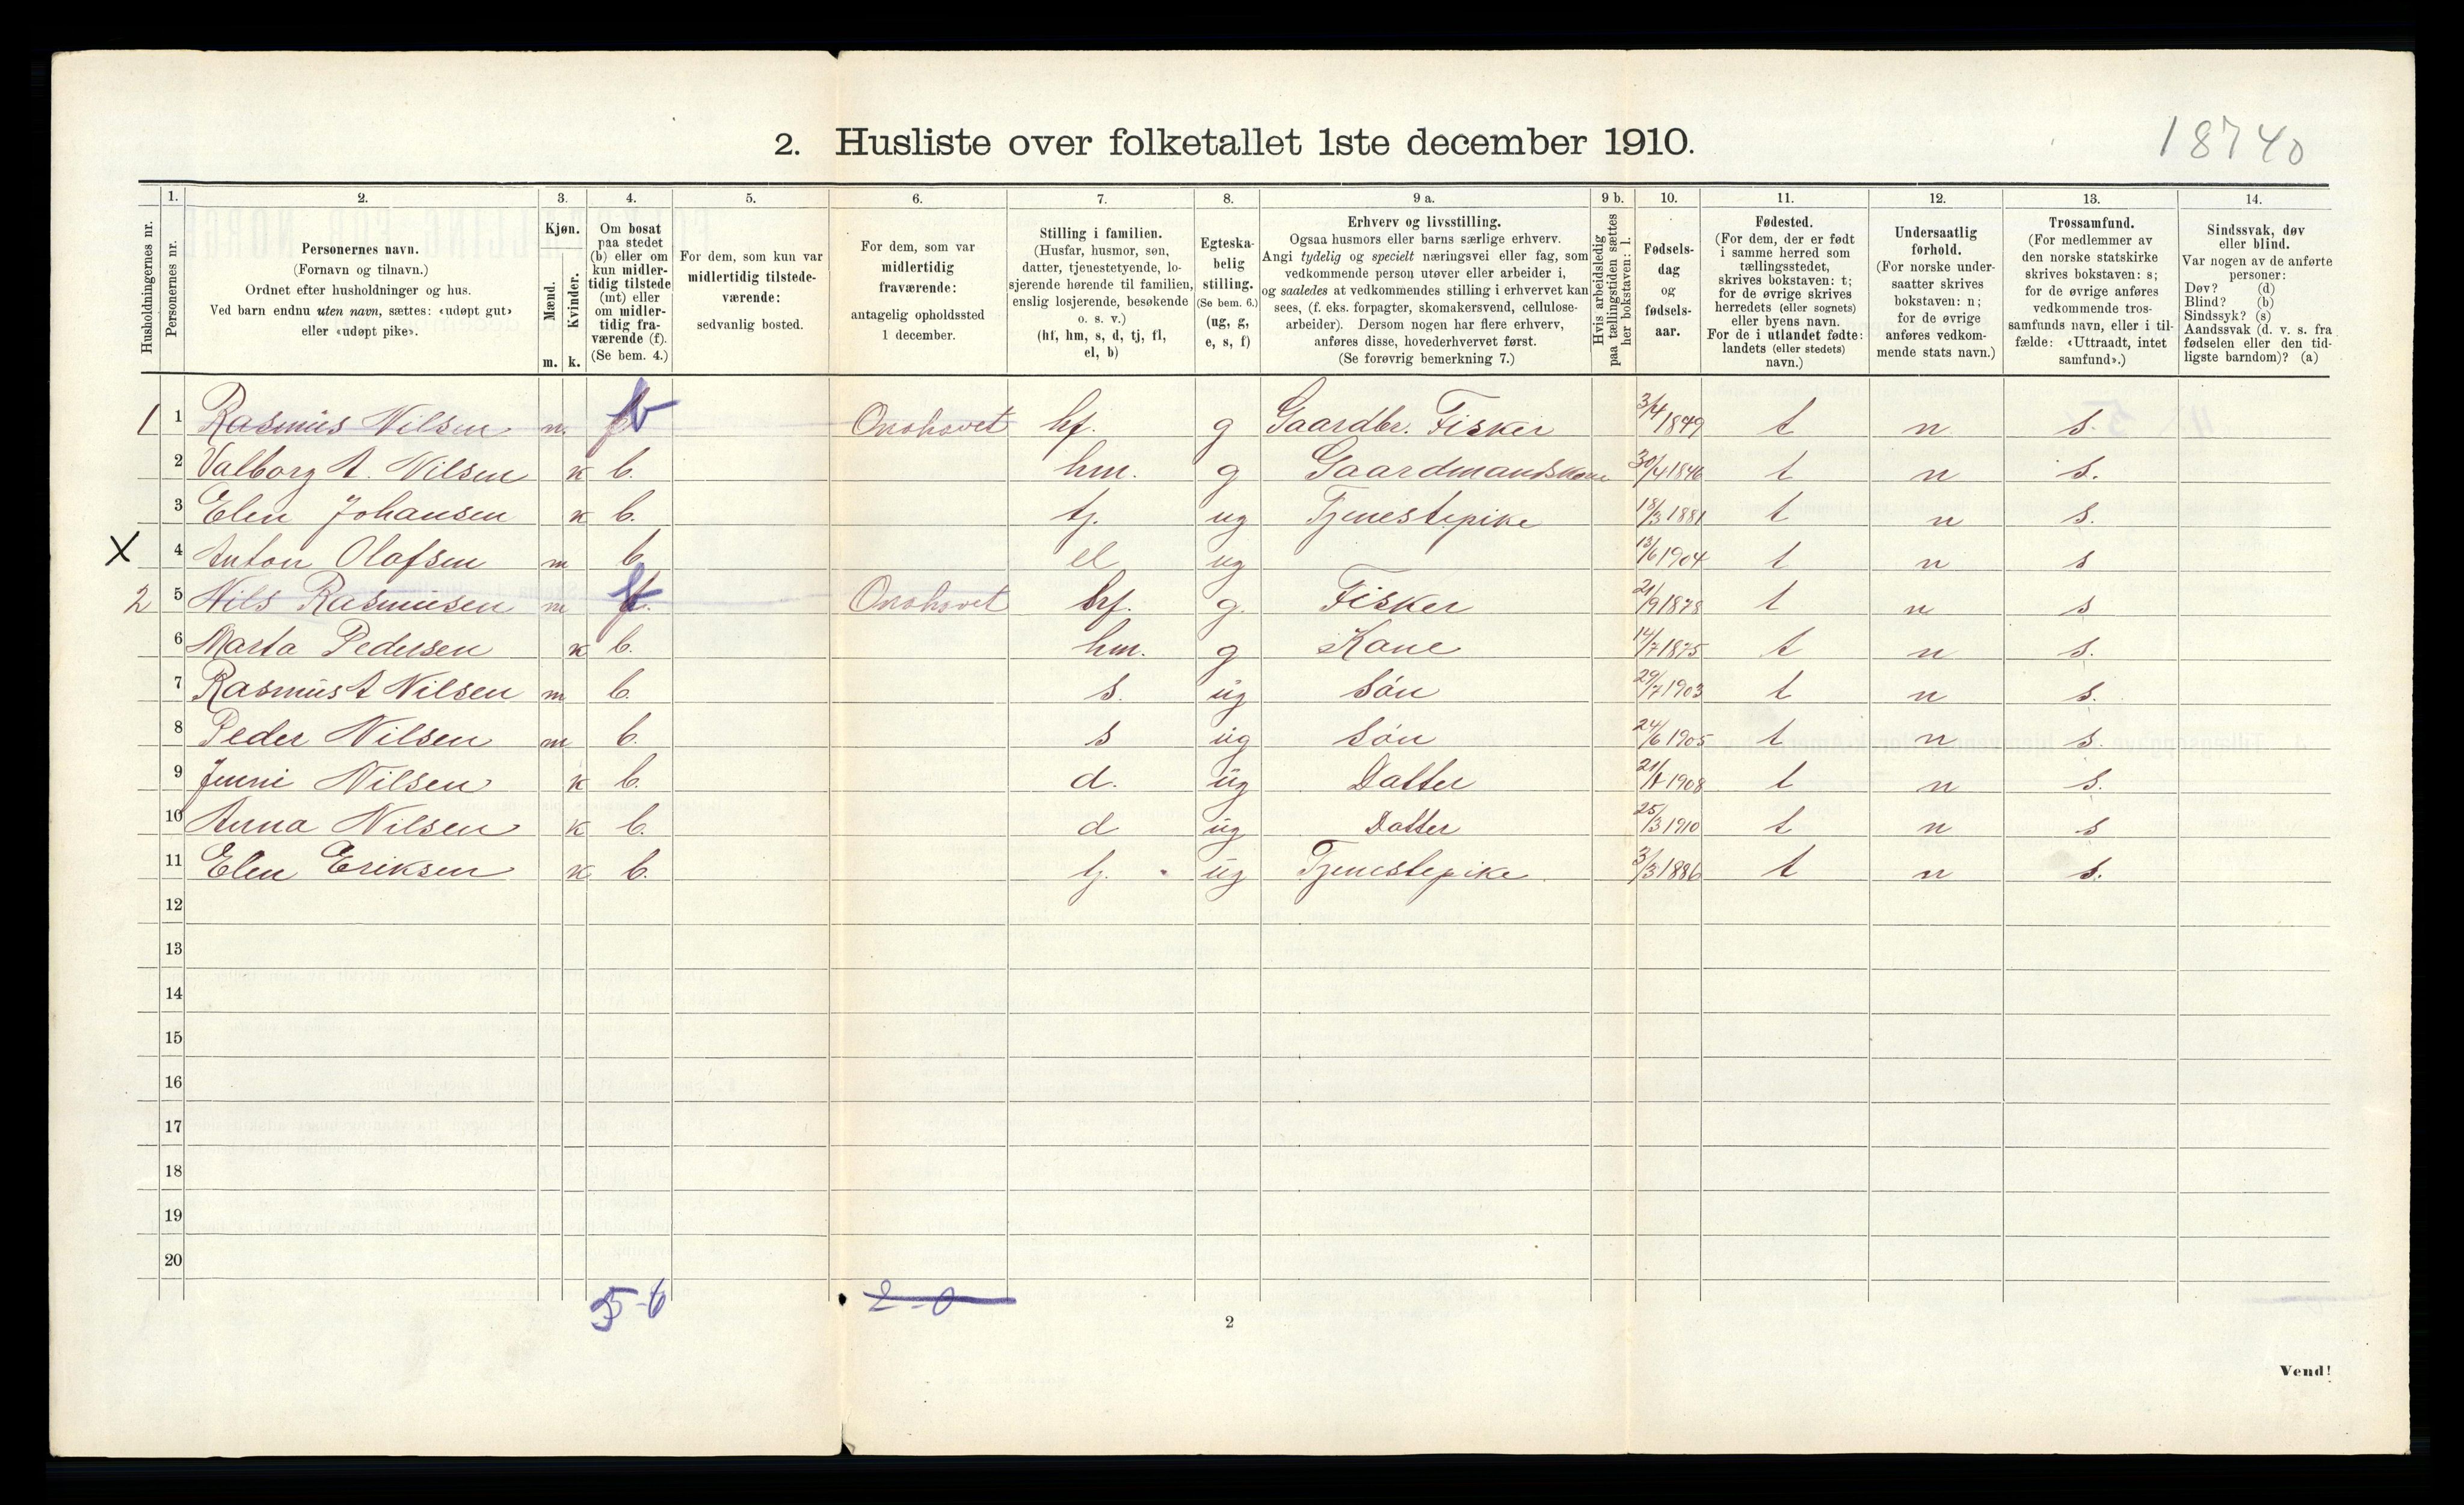 18740
2. Husliste over folketallet 1ste december 1910.
1. 2. 3. 4. 5. 6. 7. 8. 9 a. 9 b. 10. 11. 12. 13. 14.
Husholdningernes nr.
Personernes nr.
Personernes navn.
(Fornavn og tilnavn.)
Ordnet efter husholdninger og hus.
Ved barn endnu uten navn, sættes: «udøpt gut»
eller «udøpt pike».
Kjøn.
Mænd.
Kvinder.
m. k.
Om bosat
paa stedet
(b) eller om
kun midler-
tidig tilstede
(mt) eller
om midler-
tidig fra-
værende (f).
(Se bem. 4.)
For dem, som kun var
midlertidig tilstede-
værende:
sedvanlig bosted.
For dem, som var
midlertidig
fraværende:
antagelig opholdssted
1 december.
Stilling i familien.
(Husfar, husmor, søn,
datter, tjenestetyende, lo-
sjerende hørende til familien,
enslig losjerende, besøkende
o. s. v.)
(hf, hm, s, d, tj, fl,
el, b)
Egteska-
belig
stilling.
(Se bem. 6.)
(ug, g,
e, s, f)
Erhverv og livsstilling.
Ogsaa husmors eller barns særlige erhverv.
Angi tydelig og specielt næringsvei eller fag, som
vedkommende person utøver eller arbeider i,
og saaledes at vedkommendes stilling i erhvervet kan
sees, (f. eks. forpagter, skomakersvend, cellulose-
arbeider). Dersom nogen har flere erhverv,
anføres disse, hovederhvervet først.
(Se forøvrig bemerkning 7.)
Hvis arbeidsledig
paa tællingstiden sættes
her bokstaven: l.
Fødsels-
dag
og
fødsels-
aar.
Fødested.
(For dem, der er født
i samme herred som
tællingsstedet,
skrives bokstaven: t;
for de øvrige skrives
herredets (eller sognets)
eller byens navn.
For de i utlandet fødte:
landets (eller stedets)
navn.)
Undersaatlig
forhold.
(For norske under-
saatter skrives
bokstaven: n;
for de øvrige
anføres vedkom-
mende stats navn.)
Trossamfund.
(For medlemmer av
den norske statskirke
skrives bokstaven: s;
for de øvrige anføres
vedkommende tros-
samfunds navn, eller i til-
fælde: «Uttraadt, intet
samfund».)
Sindssvak, døv
eller blind.
Var nogen av de anførte
personer:
Døv? (d)
Blind? (b)
Sindssyk? (s)
Aandssvak (d. v. s. fra
fødselen eller den tid-
ligste barndom)? (a)
1 1 Rasmus Nilsen m. Onohovet hf. g Gaardbr. Fisker 3/4 1849 t n s.
2 Valborg A. Nilsen k b. hm. g Gaardmandskone 30/4 1846 t n s.
3 Elen Johansen k b. tj. ug Tjenestepike 18/3 1881 t n s.
X 4 Anton Olafsen m b. el ug 13/6 1904 t n s
2 5 Nils Rasmusen m Onohovet hf. g. Fisker 21/9 1878 t n s
6 Marta Pedersen k b. hm. g Kone 14/7 1875 t n s.
7 Rasmus A Nilsen m b. s. ug Søn 29/7 1903 t n s.
8 Peder Nilsen m b. s ug Søn 24/6 1905 t n s.
9 Jenni Nilsen k b. d. ug Datter 1908 t n s.
10 Anna Nilsen k b. d ug Datter 25/3 1910 t n s
11 Elen Eriksen k b. tj. ug Tjenestepike 3/3 1886 t n s.
12
13
14
15
16
17
18
19
20
5-6 2-0
2
Vend!